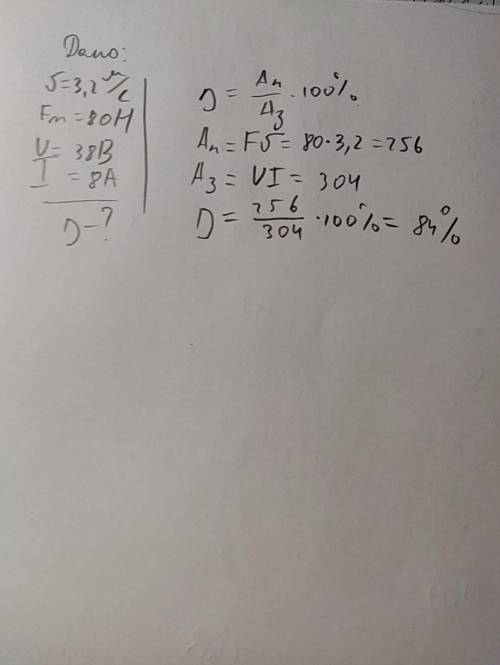 Дано:
υ=3,2 м/с
Fт=80Н
U=38В
I=8А
η-?
η = Aп/Aз · 100%
Aп = Fυ = 80·3,2 = 256
Aз = UI = 304
η = 256/304 · 100% = 84%